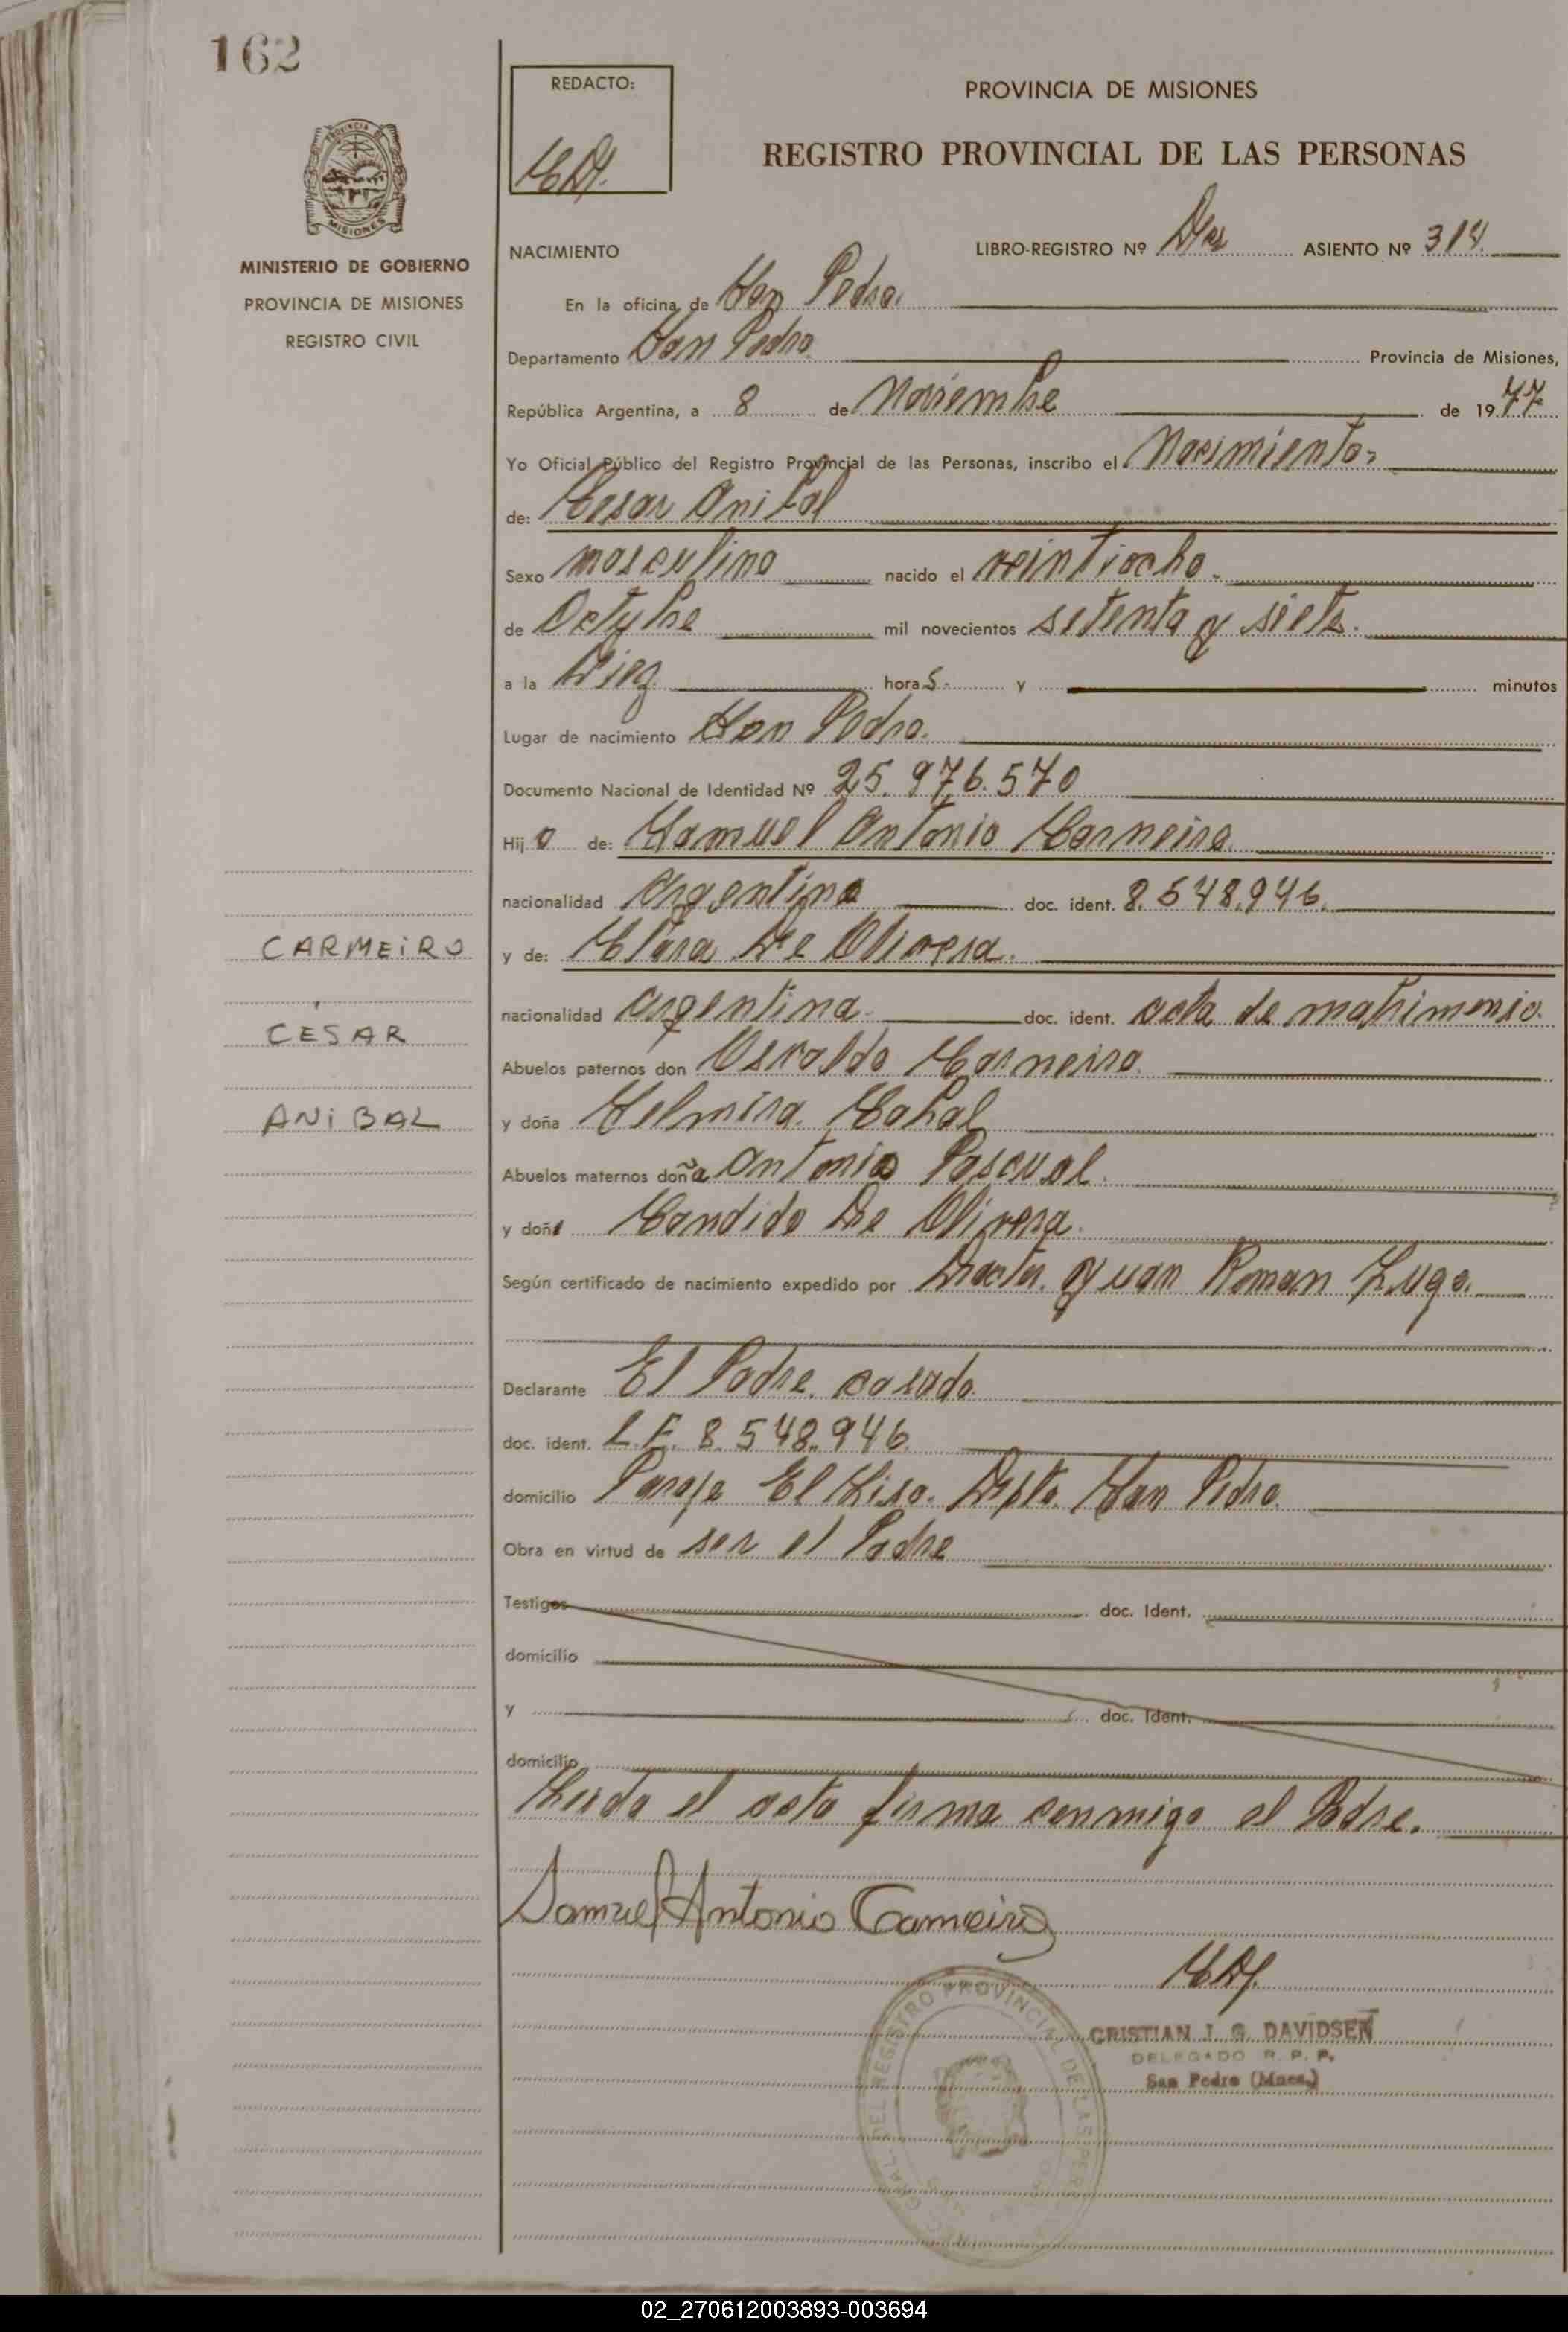 162
REDACTO:
PROVINCIA DE MISIONES
REGISTRO PROVINCIAL DE LAS PERSONAS
MINISTERIO DE GOBIERNO
PROVINCIA DE MISIONES
REGISTRO CIVIL
NACIMIENTO LIBRO-REGISTRO Nº Dos ASIENTO Nº 314
En la oficina de San Pedro.
Departamento San Pedro Provincia de Misiones,
República Argentina, a 8 de Noviembre de 1977
Yo Oficial Público del Registro Provincial de las Personas, inscribo el Nacimiento
de: Cesar Anibal
Sexo masculino nacido el veintiocho.
de Octubre mil novecientos setenta y siete.
a la Diez horas y minutos
Lugar de nacimiento San Pedro.
Documento Nacional de Identidad Nº 25.976.570
Hijo de: Samuel Antonio Carneiro
nacionalidad Argentina doc. ident. 8.548.946.
CARMEIRO
y de: Clara De Olivera.
nacionalidad Argentina doc. ident. acta de matrimonio.
CÉSAR
Abuelos paternos don Osvaldo Carneiro.
ANiBAL
y doña Selmira Cabral
Abuelos maternos doña Antonia Pascual.
y don Candido De Olivera.
Según certificado de nacimiento expedido por Doctor. Juan Roman Lugo.
Declarante El Padre casado
doc. ident. L.E. 8.548.946
domicilio Paraje El Liso. Dpto. San Pedro
Obra en virtud de ser el Padre
Testigos doc. Ident.
domicilio
y doc. Ident.
domicilio
Leida el acta firma conmigo el Padre.
Samuel Antonio Carneiro
CRISTIAN J. G. DAVIDSEN
DELEGADO R. P. P.
San Pedro (Mnes.)
02_270612003893-003694